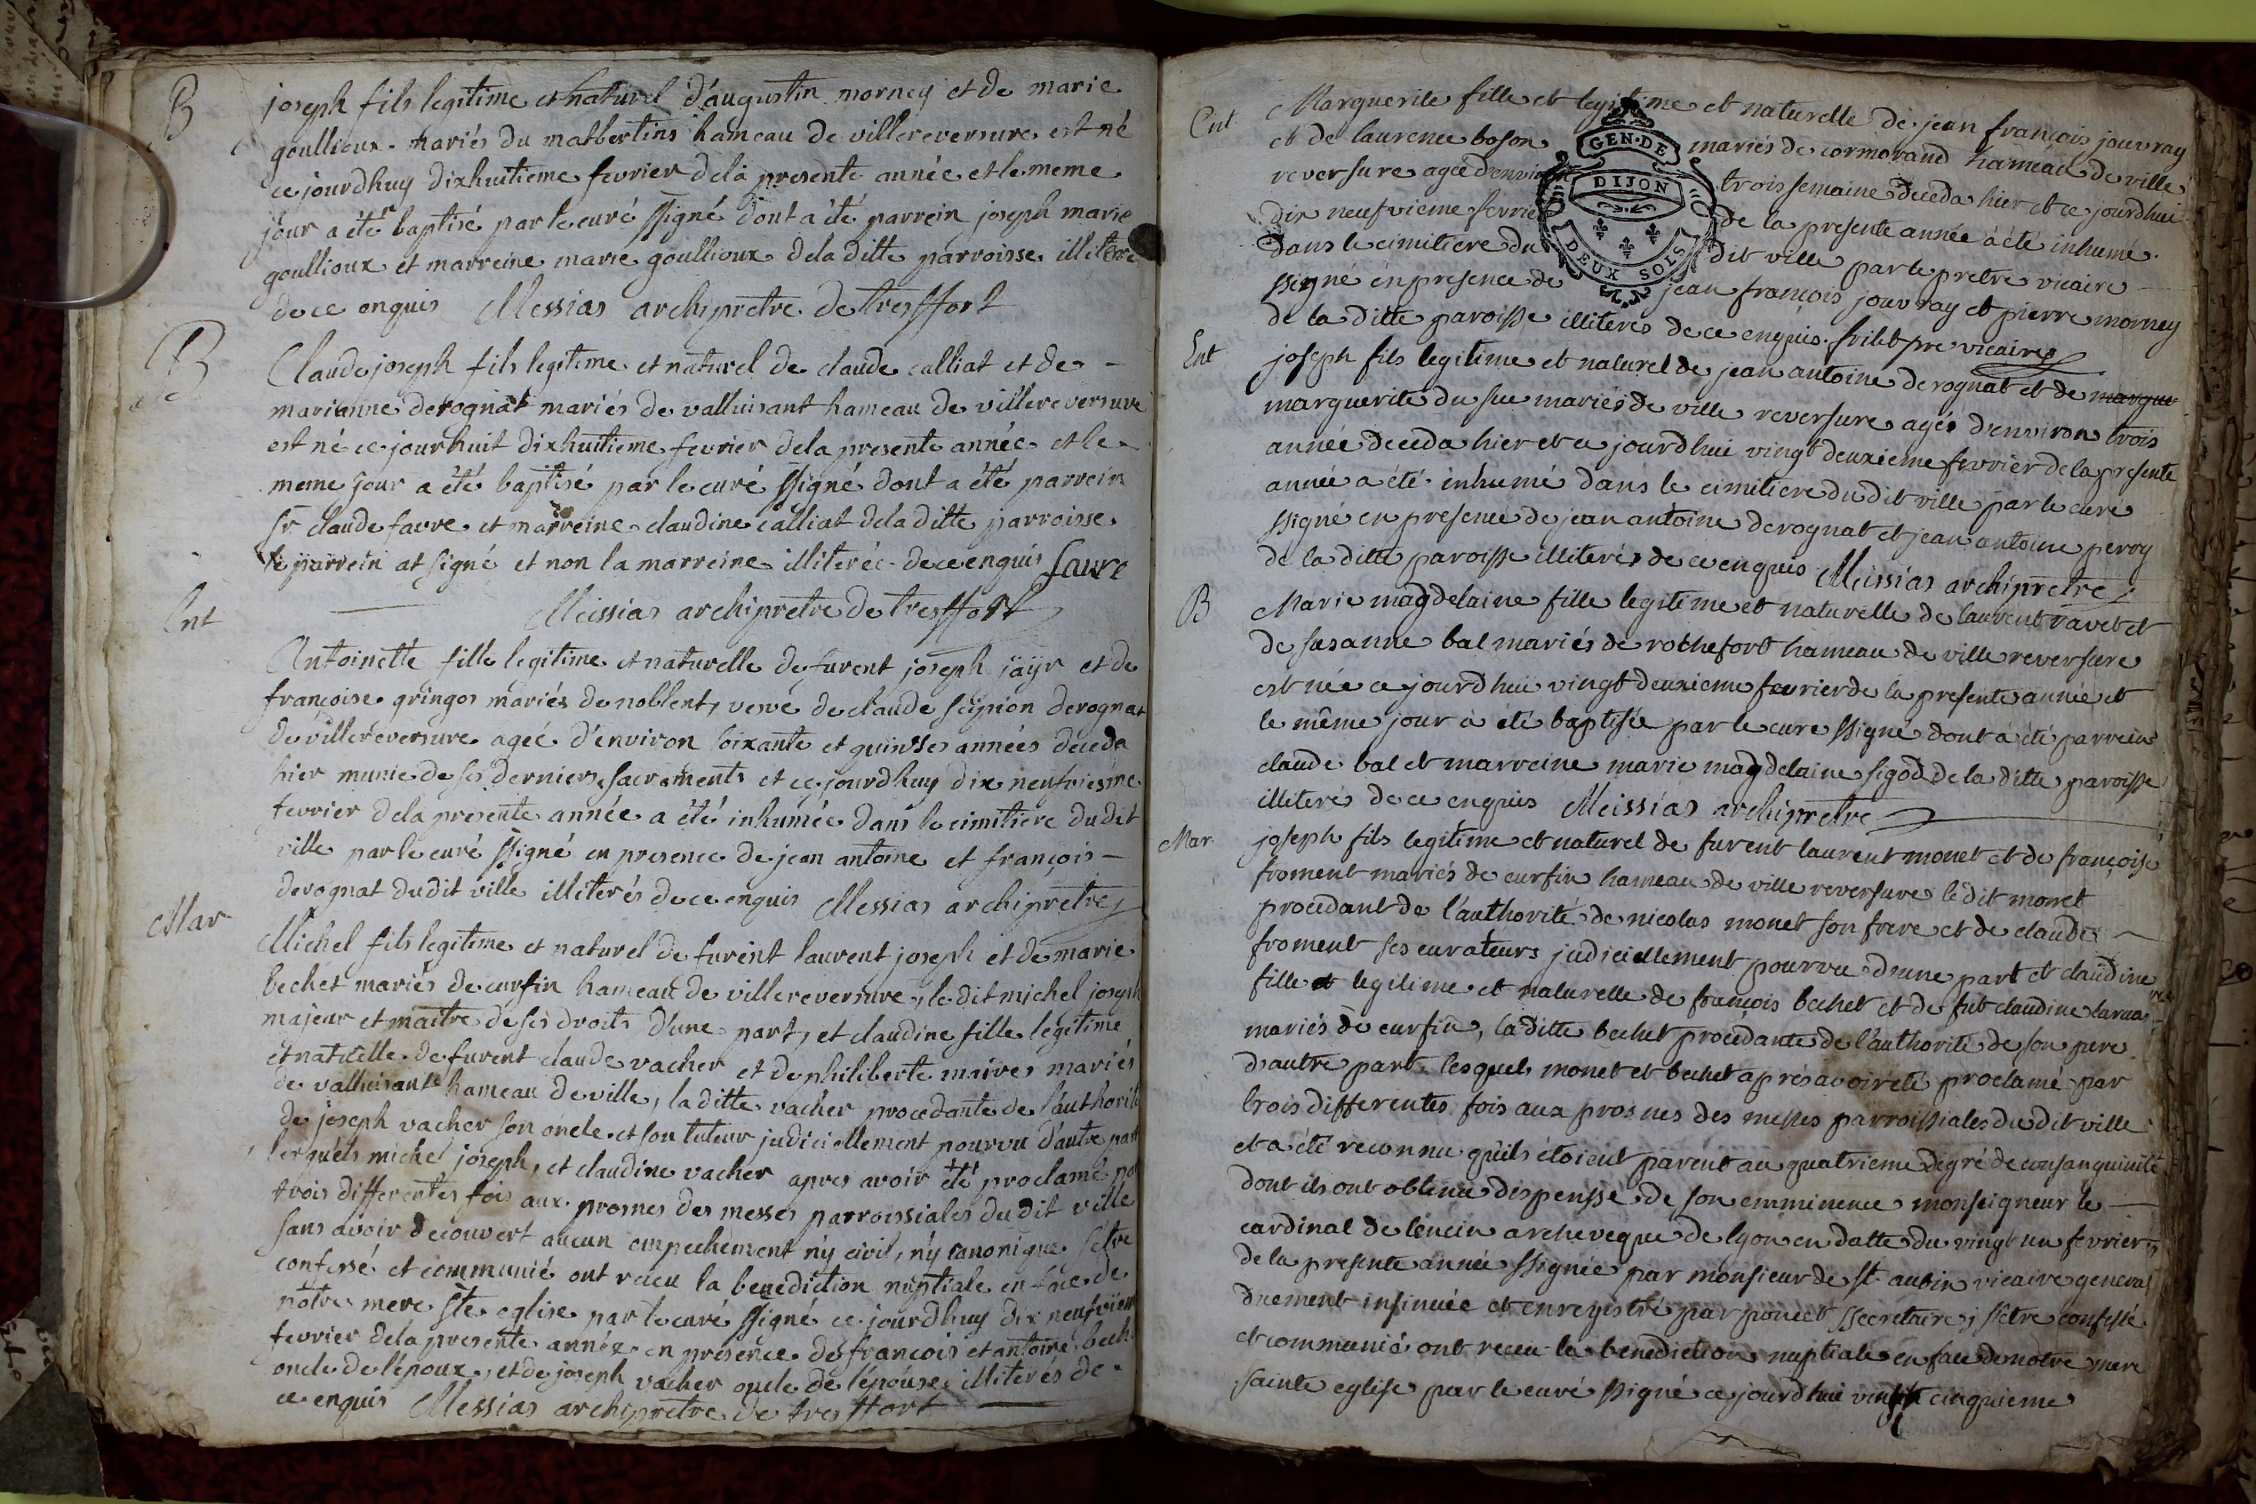 B
joseph fils legitime et naturel d'augustin morney et de marie
goullioux mariés du matbertins hameau de villereversure est né
ce jourdhuy dixhuitieme fevrier dela presente année et le meme
jour a été baptisé par le curé ssigné dont a été parrein joseph marie
goullioux et marreine marie goullioux dela ditte parroisse illiteré
de ce enquis Messias archipretre de tresffort
B
Claude joseph fils legitime et naturel de claude calliat et de
marianne derognat mariés de valluisant hameau de villereversure
est né ce jourhuit dixhuitieme fevrier dela presente année et le
meme jour a été baptisé par le curé ssigné dont a été parrein
sr claude favre et marreine claudine calliat dela ditte parroisse
le parrein at signé et non la marreine illiterée de ce enquis favre
Meissias archipretre de tresffort
Ent
Antoinette fille legitime et naturelle de furent joseph jäyr et de
françoise gringos mariés de noblent, veuve de claude scipion derognat
de villereversure agée d'environ soixante et quinse années deceda
hier munie de ses derniers sacrements et ce jourdhuy dix neufviesme
fevrier dela presente année a été inhumée dans le cimitiere du dit
ville par le curé ssigné en presence de jean antoine et françois
derognat du dit ville illiterés de ce enquis Messias archipretre
Mar
Michel fils legitime et naturel de furent laurent joseph et de marie
bechet mariés de curfin hameau de villereversure, le dit michel joseph
majeur et maitre de ses droits d'une part, et claudine fille legitime
et naturelle de furent claude vacher et de philiberte maires mariés
de valluisant hameau de ville, la ditte vacher procedante de l'authorité
de joseph vacher son oncle et son tuteur judiciellement pourvu d'autre part
lesquels michel joseph, et claudine vacher apres avoir été proclamé par
trois differentes fois aux prosnes des messes parroissiales du dit ville
sans avoir decouvert aucun empechement n'y civil, n'y canonique s'etre
confessé et communié ont receu la benediction nuptiale en face de
notre mere ste eglise par le curé ssigné ce jourdhuy dix neufvieme
fevrier dela presente année en presence de françois et antoine bechet
oncle de l'époux, et de joseph vacher oncle de l'épouse illiterés de
ce enquis Messias archipretre de tresffort
Ent
Marguerite fille et legitime et naturelle de jean françois jouvray
et de laurence boson mariés de cormorand hameau de ville
reversure agée d'environ trois semaine deceda hier et ce jourdhui
dix neufvieme fevrier de la presente année à été inhumé
dans le cimitiere du dit ville par le pretre vicaire
ssigné en presence de jean françois jouvray et pierre morney
de la ditte paroisse illiteres de ce enquis frilet pre vicaire
GEN·DE
DIJON
DEUX SOLS
Ent
joseph fils legitime et naturel de jean antoine derognat et de margue
marguerite du suc mariés de ville reversure agés d'environ trois
année deceda hier et ce jourdhui vingt deuxieme fevrier de la presente
année a été inhumé dans le cimitiere du dit ville par le curé
ssigné en presence de jean antoine derognat et jean antoine perroy
de la ditte paroisse illiterés de ce enquis Meissias archipretre
B
Marie magdelaine fille legitime et naturelle de laurent ravet et
de susanne bal mariés de rochefort hameau de ville reversure
est née ce jourdhui vingt deuxieme fevrier de la presente année et
le même jour à été baptisée par le curé ssigné dont à été parrein
claude bal et marreine marie magdelaine sigod de la ditte paroisse
illiterés de ce enquis Meissias archipretre
Mar
joseph fils legitime et naturel de furent laurent monet et de françoise
froment mariés de curfin hameau de ville reversure le dit monet
procedant de l'authorité de nicolas monet son frere et de claude
froment ses curateurs judiciellement pourvu d'une part et claudine
fille et legitime et naturelle de françois bechet et de fut claudine
mariés de curfin, la ditte bechet procedante de l'authorité de son pere
d'autre part lesquels monet et bechet après avoir été proclamé par
trois differentes fois aux prosnes des messes parroissiales du dit ville
et a été reconnu qu'ils étoient parent au quatrieme degré de consanguinité
dont ils ont obtenu dispensse de son emminence monseigneur le
cardinal de tencin archeveque de lyon en datte du vingt un fevrier
de la presente année ssignée par monsieur de st. aubin vicaire general
duement insinuée et enregistré par poncet ssecretaire, s'être confessé
et communié ont receu la benediction nuptiale en face de notre mere
sainte eglise par le curé ssigné ce jourdhui vingt cinquieme